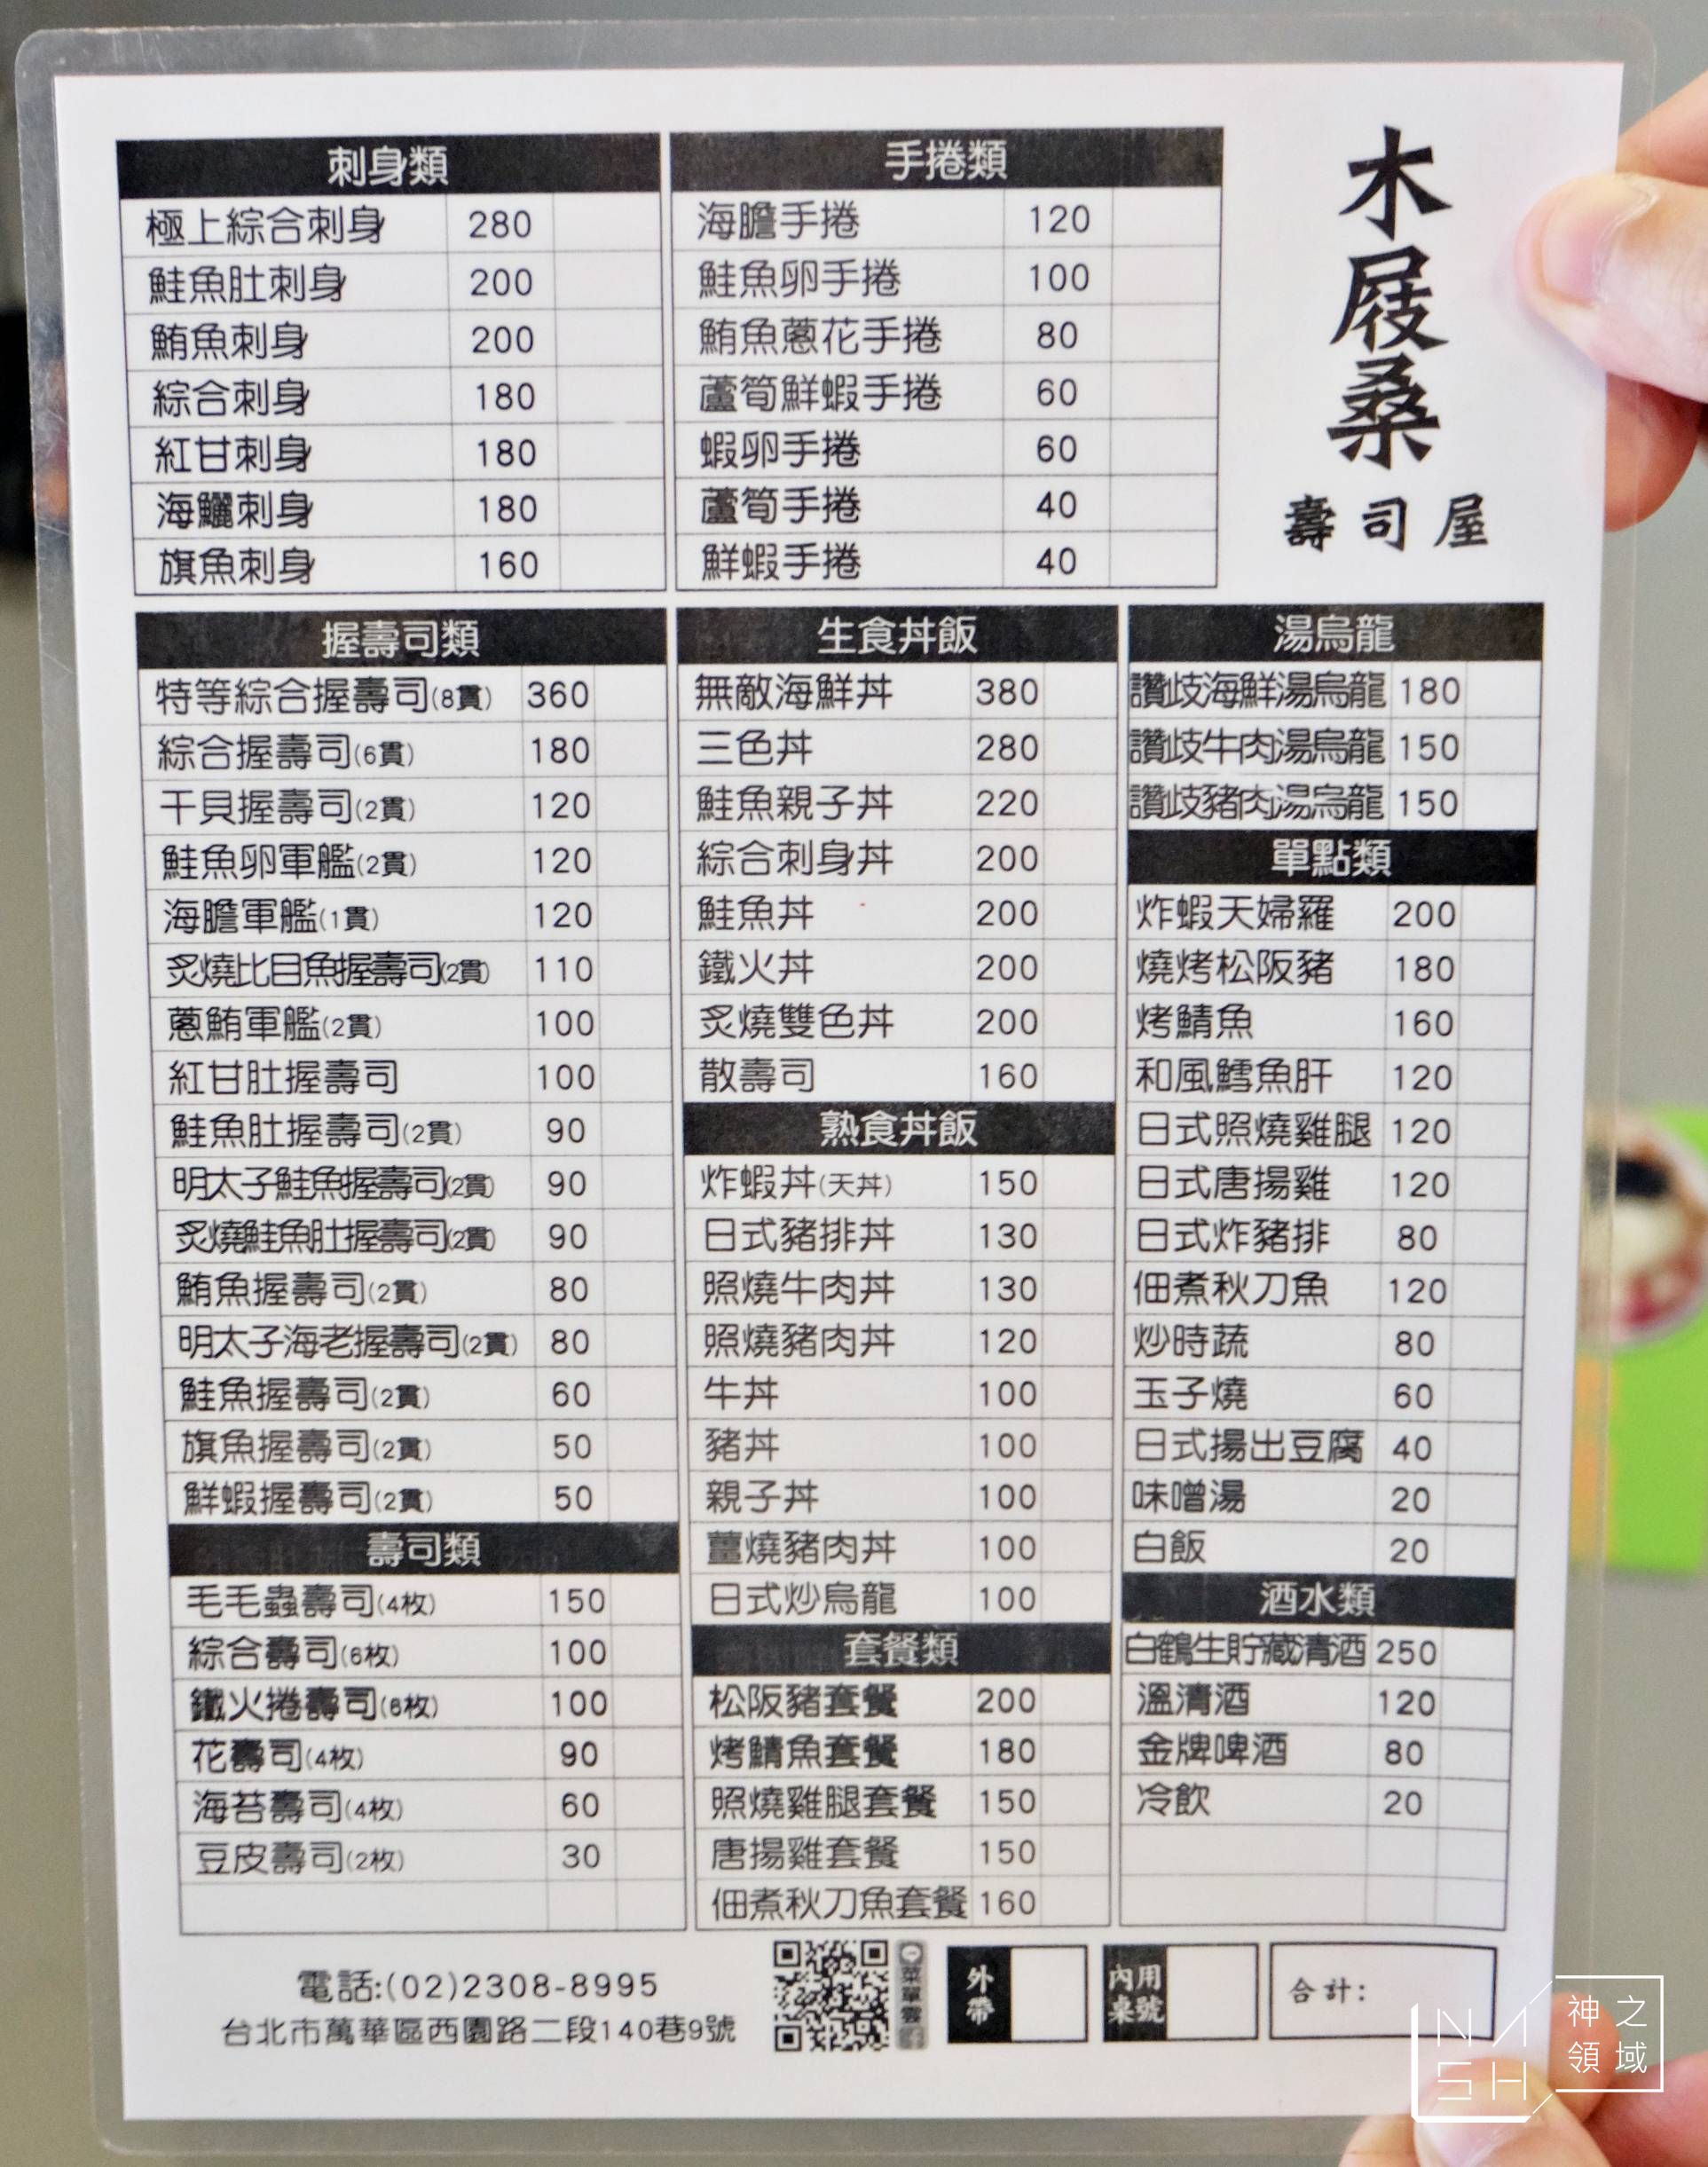 木屐桑
壽司屋
刺身類
極上綜合刺身 280
鮭魚肚刺身 200
鮪魚刺身 200
綜合刺身 180
紅甘刺身 180
海鱺刺身 180
旗魚刺身 160
手捲類
海膽手捲 120
鮭魚卵手捲 100
鮪魚蔥花手捲 80
蘆筍鮮蝦手捲 60
蝦卵手捲 60
蘆筍手捲 40
鮮蝦手捲 40
握壽司類
特等綜合握壽司(8貫) 360
綜合握壽司(6貫) 180
干貝握壽司(2貫) 120
鮭魚卵軍艦(2貫) 120
海膽軍艦(1貫) 120
炙燒比目魚握壽司(2貫) 110
蔥鮪軍艦(2貫) 100
紅甘肚握壽司 100
鮭魚肚握壽司(2貫) 90
明太子鮭魚握壽司(2貫) 90
炙燒鮭魚肚握壽司(2貫) 90
鮪魚握壽司(2貫) 80
明太子海老握壽司(2貫) 80
鮭魚握壽司(2貫) 60
旗魚握壽司(2貫) 50
鮮蝦握壽司(2貫) 50
壽司類
毛毛蟲壽司(4枚) 150
綜合壽司(6枚) 100
鐵火捲壽司(6枚) 100
花壽司(4枚) 90
海苔壽司(4枚) 60
豆皮壽司(2枚) 30
生食丼飯
無敵海鮮丼 380
三色丼 280
鮭魚親子丼 220
綜合刺身丼 200
鮭魚丼 200
鐵火丼 200
炙燒雙色丼 200
散壽司 160
熟食丼飯
炸蝦丼(天丼) 150
日式豬排丼 130
照燒牛肉丼 130
照燒豬肉丼 120
牛丼 100
豬丼 100
親子丼 100
薑燒豬肉丼 100
日式炒烏龍 100
套餐類
松阪豬套餐 200
烤鯖魚套餐 180
照燒雞腿套餐 150
唐揚雞套餐 150
佃煮秋刀魚套餐 160
湯烏龍
讚歧海鮮湯烏龍 180
讚歧牛肉湯烏龍 150
讚歧豬肉湯烏龍 150
單點類
炸蝦天婦羅 200
燒烤松阪豬 180
烤鯖魚 160
和風鱈魚肝 120
日式照燒雞腿 120
日式唐揚雞 120
日式炸豬排 80
佃煮秋刀魚 120
炒時蔬 80
玉子燒 60
日式揚出豆腐 40
味噌湯 20
白飯 20
酒水類
白鶴生貯藏清酒 250
溫清酒 120
金牌啤酒 80
冷飲 20
電話:(02)2308-8995
台北市萬華區西園路二段140巷9號
菜單雲
外帶
內用桌號
合計:
NASH
神之領域